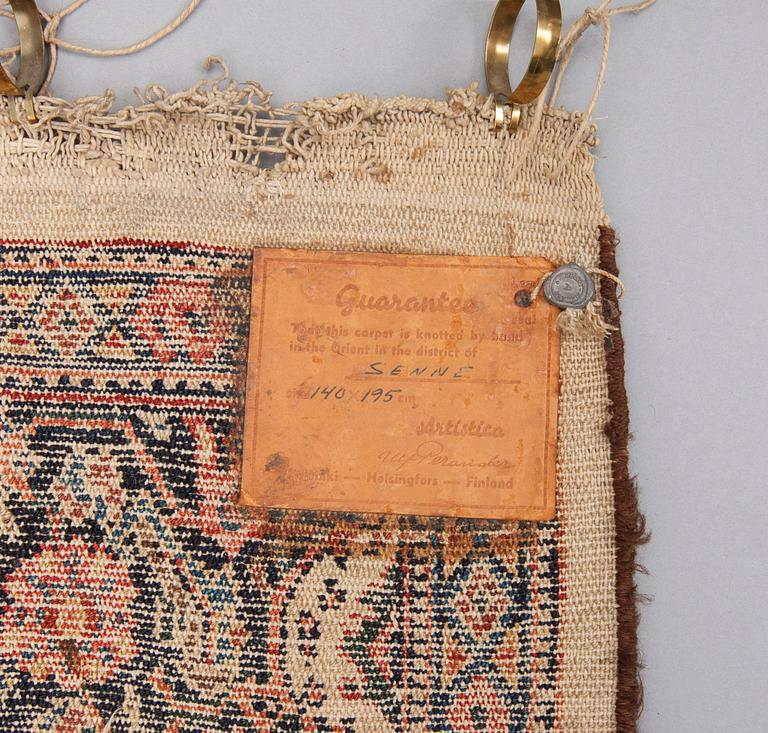 Guarantee
That this carpet is knotted by hand
in the Orient in the district of
SENNE
size 140 x 195 cm
Artistica
Helsinki — Helsingfors — Finland